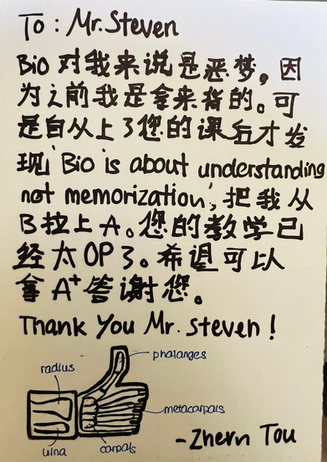 To: Mr. Steven
Bio 对我来说是恶梦, 因
为之前我是拿来背的。可
是自从上了您的课后才发
现‘Bio is about understanding
not memorization’, 把我从
B拉上A。您的教学已
经太OP了。希望可以
拿A+答谢您。
Thank You Mr. Steven!
phalanges
radius
metacarpals
ulna
carpals
-Zhern Tou